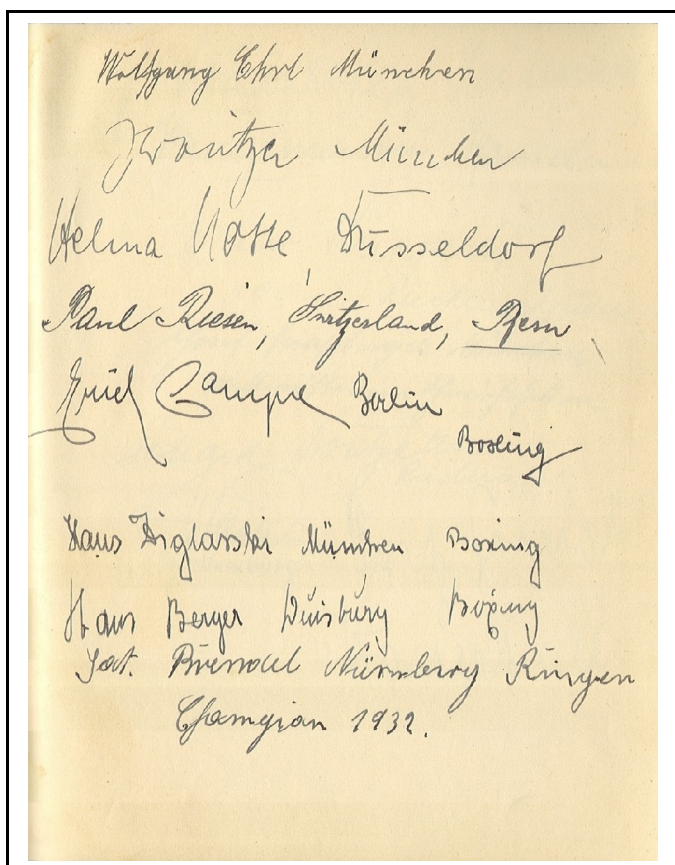 Wolfgang Ehrl München
München
Helma Notte, Düsseldorf
Paul Riesen, Switzerland, Bern
Erich Campe Berlin
Boxing
Hans Ziglarski München Boxing
Hans Berger Duisburg Boxing
Jak. Brendel Nürnberg Ringen
Champion 1932.